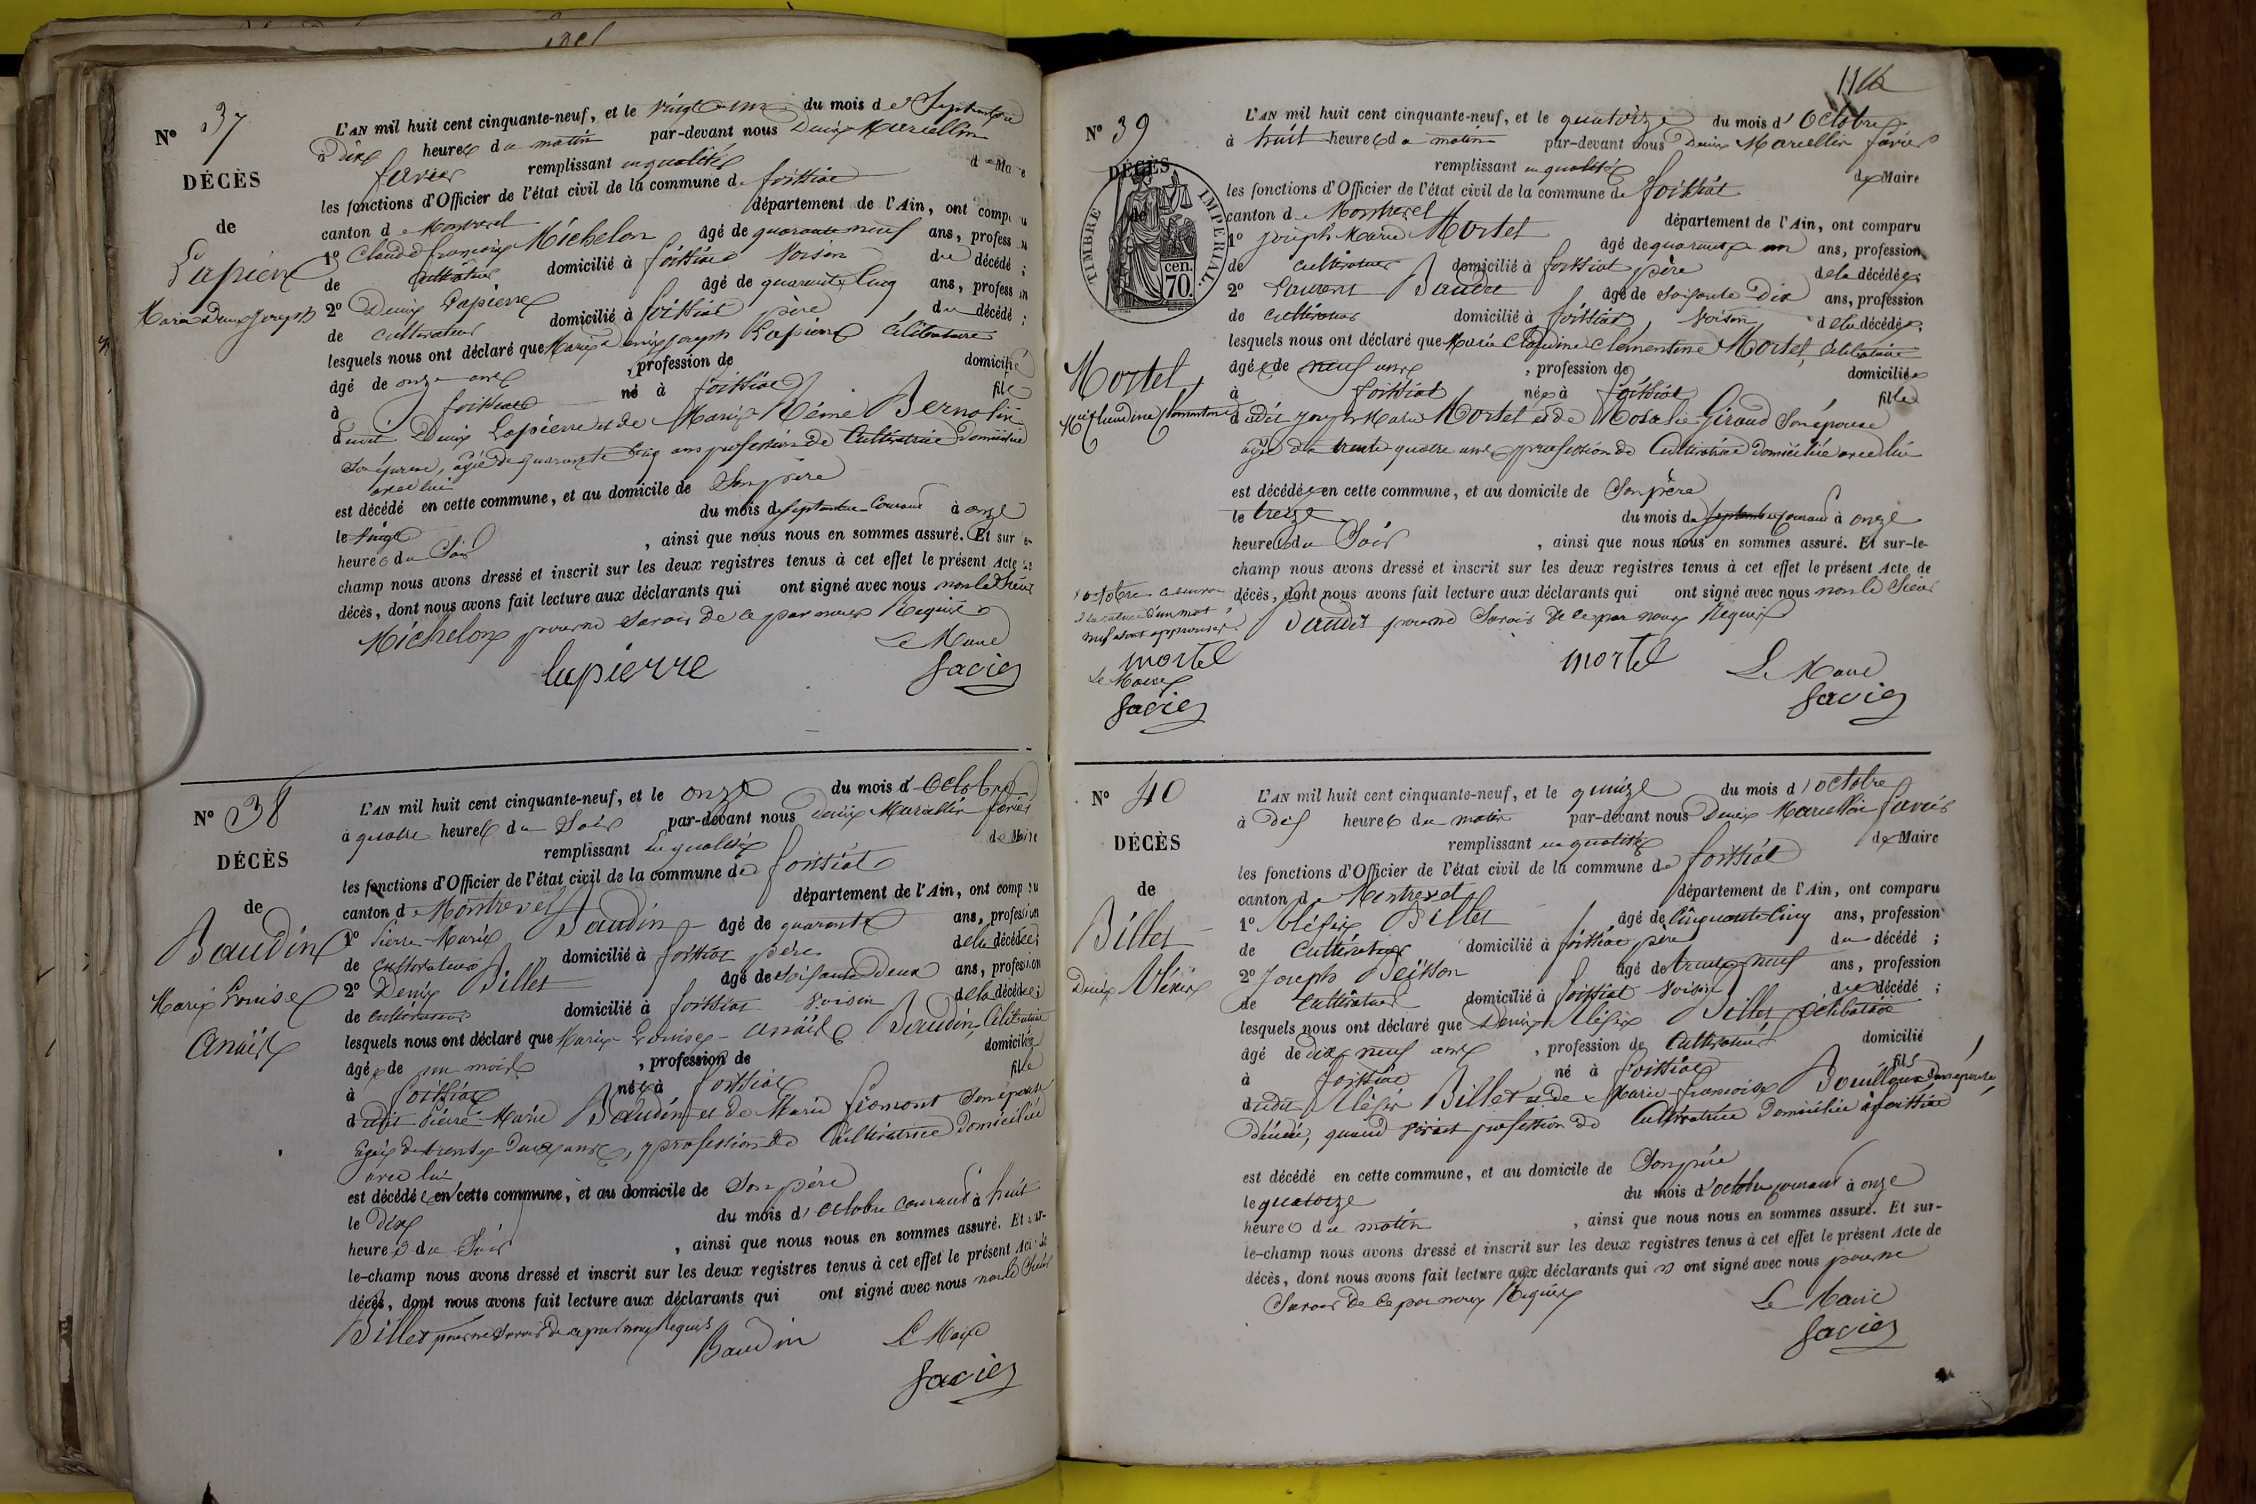 N° 37
DÉCÈS
de
Lapierre
Marie Denis Joseph
L'AN mil huit cent cinquante-neuf, et le vingt un du mois de Septembre
à Dix heures du matin par-devant nous Denis Marcellin
favier remplissant en qualité de Maire
les fonctions d'Officier de l'état civil de la commune de foissiat
canton de Montrevel département de l'Ain, ont comparu
1° Claude françois Michelon âgé de quarante neuf ans, profession
de Cultivateur domicilié à foissiat Voisin du décédé ;
2° Denis Lapierre âgé de quarante Cinq ans, profession
de cultivateur domicilié à foissiat père du décédé ;
lesquels nous ont déclaré que Marie denis joseph Lapierre Célibataire
âgé de onze ans , profession de domicilié
à foissiat né à foissiat fils
dudit Denis Lapierre et de Marie Bernolin
Son épouse, agée de quarante Cinq ans profession de Cultivatrice Domiciliée
avec lui
est décédé en cette commune, et au domicile de Son père
le Vingt du mois de Septembre Courant à onze
heures du Soir , ainsi que nous nous en sommes assuré. Et sur le-
champ nous avons dressé et inscrit sur les deux registres tenus à cet effet le présent Acte de
décès, dont nous avons fait lecture aux déclarants qui ont signé avec nous non le Sieur
Michelon pour ne Savoir de ce par nous Requis
Le Maire
lapierre favier
N° 38
DÉCÈS
de
Baudin
Marie Louise
Anaïs
L'AN mil huit cent cinquante-neuf, et le onze du mois d'Octobre
à quatre heures du Soir par-devant nous Denis Marcellin favier
remplissant en qualité de Maire
les fonctions d'Officier de l'état civil de la commune de foissiat
canton de Montrevel département de l'Ain, ont comparu
1° Pierre-Marie Baudin âgé de quarante ans, profession
de Cultivateur domicilié à foissiat père de la décédée ;
2° Denis Billet âgé de soixante deux ans, profession
de Cultivateur domicilié à foissiat Voisin de la décédée ;
lesquels nous ont déclaré que Marie Louise Anaïs Baudin, Célibataire
âgée de un mois , profession de domiciliée
à foissiat née à foissiat fille
dudit Pierre-Marie Baudin et de Marie fromont Son épouse
agée de trente Deux ans, profession de Cultivatrice domiciliée
avec lui
est décédée en cette commune, et au domicile de Son père
le Dix du mois d'octobre courant à huit
heures du Soir , ainsi que nous nous en sommes assuré. Et sur-
le-champ nous avons dressé et inscrit sur les deux registres tenus à cet effet le présent Acte de
décès, dont nous avons fait lecture aux déclarants qui ont signé avec nous non le Sieur
Billet pour ne Savoir de ce par nous Requis
Baudin Le Maire
favier
114
N° 39
DÉCÈS
de
TIMBRE IMPÉRIAL
70 cen.
Mortel
Mie Claudine Clémentine
L'AN mil huit cent cinquante-neuf, et le quatorze du mois d'Octobre
à huit heures du matin par-devant nous Denis Marcellin favier
remplissant en qualité de Maire
les fonctions d'Officier de l'état civil de la commune de foissiat
canton de Montrevel département de l'Ain, ont comparu
1° joseph Marie Mortel âgé de quarante un ans, profession
de Cultivateur domicilié à foissiat père de la décédée ;
2° Laurent Baudet âgé de Soixante Dix ans, profession
de Cultivateur domicilié à foissiat Voisin de la décédée ;
lesquels nous ont déclaré que Marie Claudine Clémentine Mortel, Célibataire
âgée de neuf ans , profession de domiciliée
à foissiat née à foissiat fille
dudit joseph Marie Mortel et de Rosalie Giraud Son épouse
agée de trente quatre ans profession de Cultivatrice Domiciliée avec lui
est décédée en cette commune, et au domicile de Son père
le treize du mois de septembre courant à onze
heures du Soir , ainsi que nous nous en sommes assuré. Et sur-le-
champ nous avons dressé et inscrit sur les deux registres tenus à cet effet le présent Acte de
décès, dont nous avons fait lecture aux déclarants qui ont signé avec nous non le Sieur
Baudet pour ne Savoir de ce par nous Requis
octobre
la rature d'un mot
nul approuvés
mortel
Le Maire
favier
mortel Le Maire
favier
N° 40
DÉCÈS
de
Billet
Denis Alexis
L'AN mil huit cent cinquante-neuf, et le quinze du mois d'octobre
à Dix heures du matin par-devant nous Denis Marcellin favier
remplissant en qualité de Maire
les fonctions d'Officier de l'état civil de la commune de foissiat
canton de Montrevel département de l'Ain, ont comparu
1° Alexis Billet âgé de Cinquante Cinq ans, profession
de Cultivateur domicilié à foissiat père du décédé ;
2° Joseph Buisson âgé de trente neuf ans, profession
de Cultivateur domicilié à foissiat Voisin du décédé ;
lesquels nous ont déclaré que Denis Alexis Billet, Célibataire
âgé de dix neuf ans , profession de Cultivateur domicilié
à foissiat né à foissiat fils
dudit Alexis Billet et de Marie françoise Bouilloux Son épouse
décédée, quand vivait profession de Cultivatrice Domiciliée à foissiat
est décédé en cette commune, et au domicile de Son père
le quatorze du mois d'octobre courant à onze
heures du matin , ainsi que nous nous en sommes assuré. Et sur-
le-champ nous avons dressé et inscrit sur les deux registres tenus à cet effet le présent Acte de
décès, dont nous avons fait lecture aux déclarants qui n'ont signé avec nous pour ne
Savoir de ce par nous Requis
Le Maire
favier